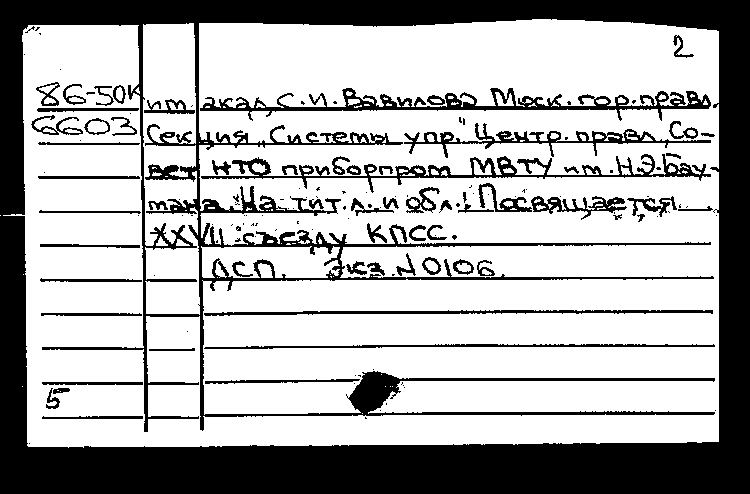 2
86-50К им. акад. С.И. Вавилова Моск. гор. правл.
6603 Секция „Системы упр." Центр. правл., Со-
вет НТО приборпром МВТУ им. Н.Э. Бау-
мана. На тит. л. и обл.: Посвящается
XXVII съезду КПСС.
ДСП. Экз. N0106.
5